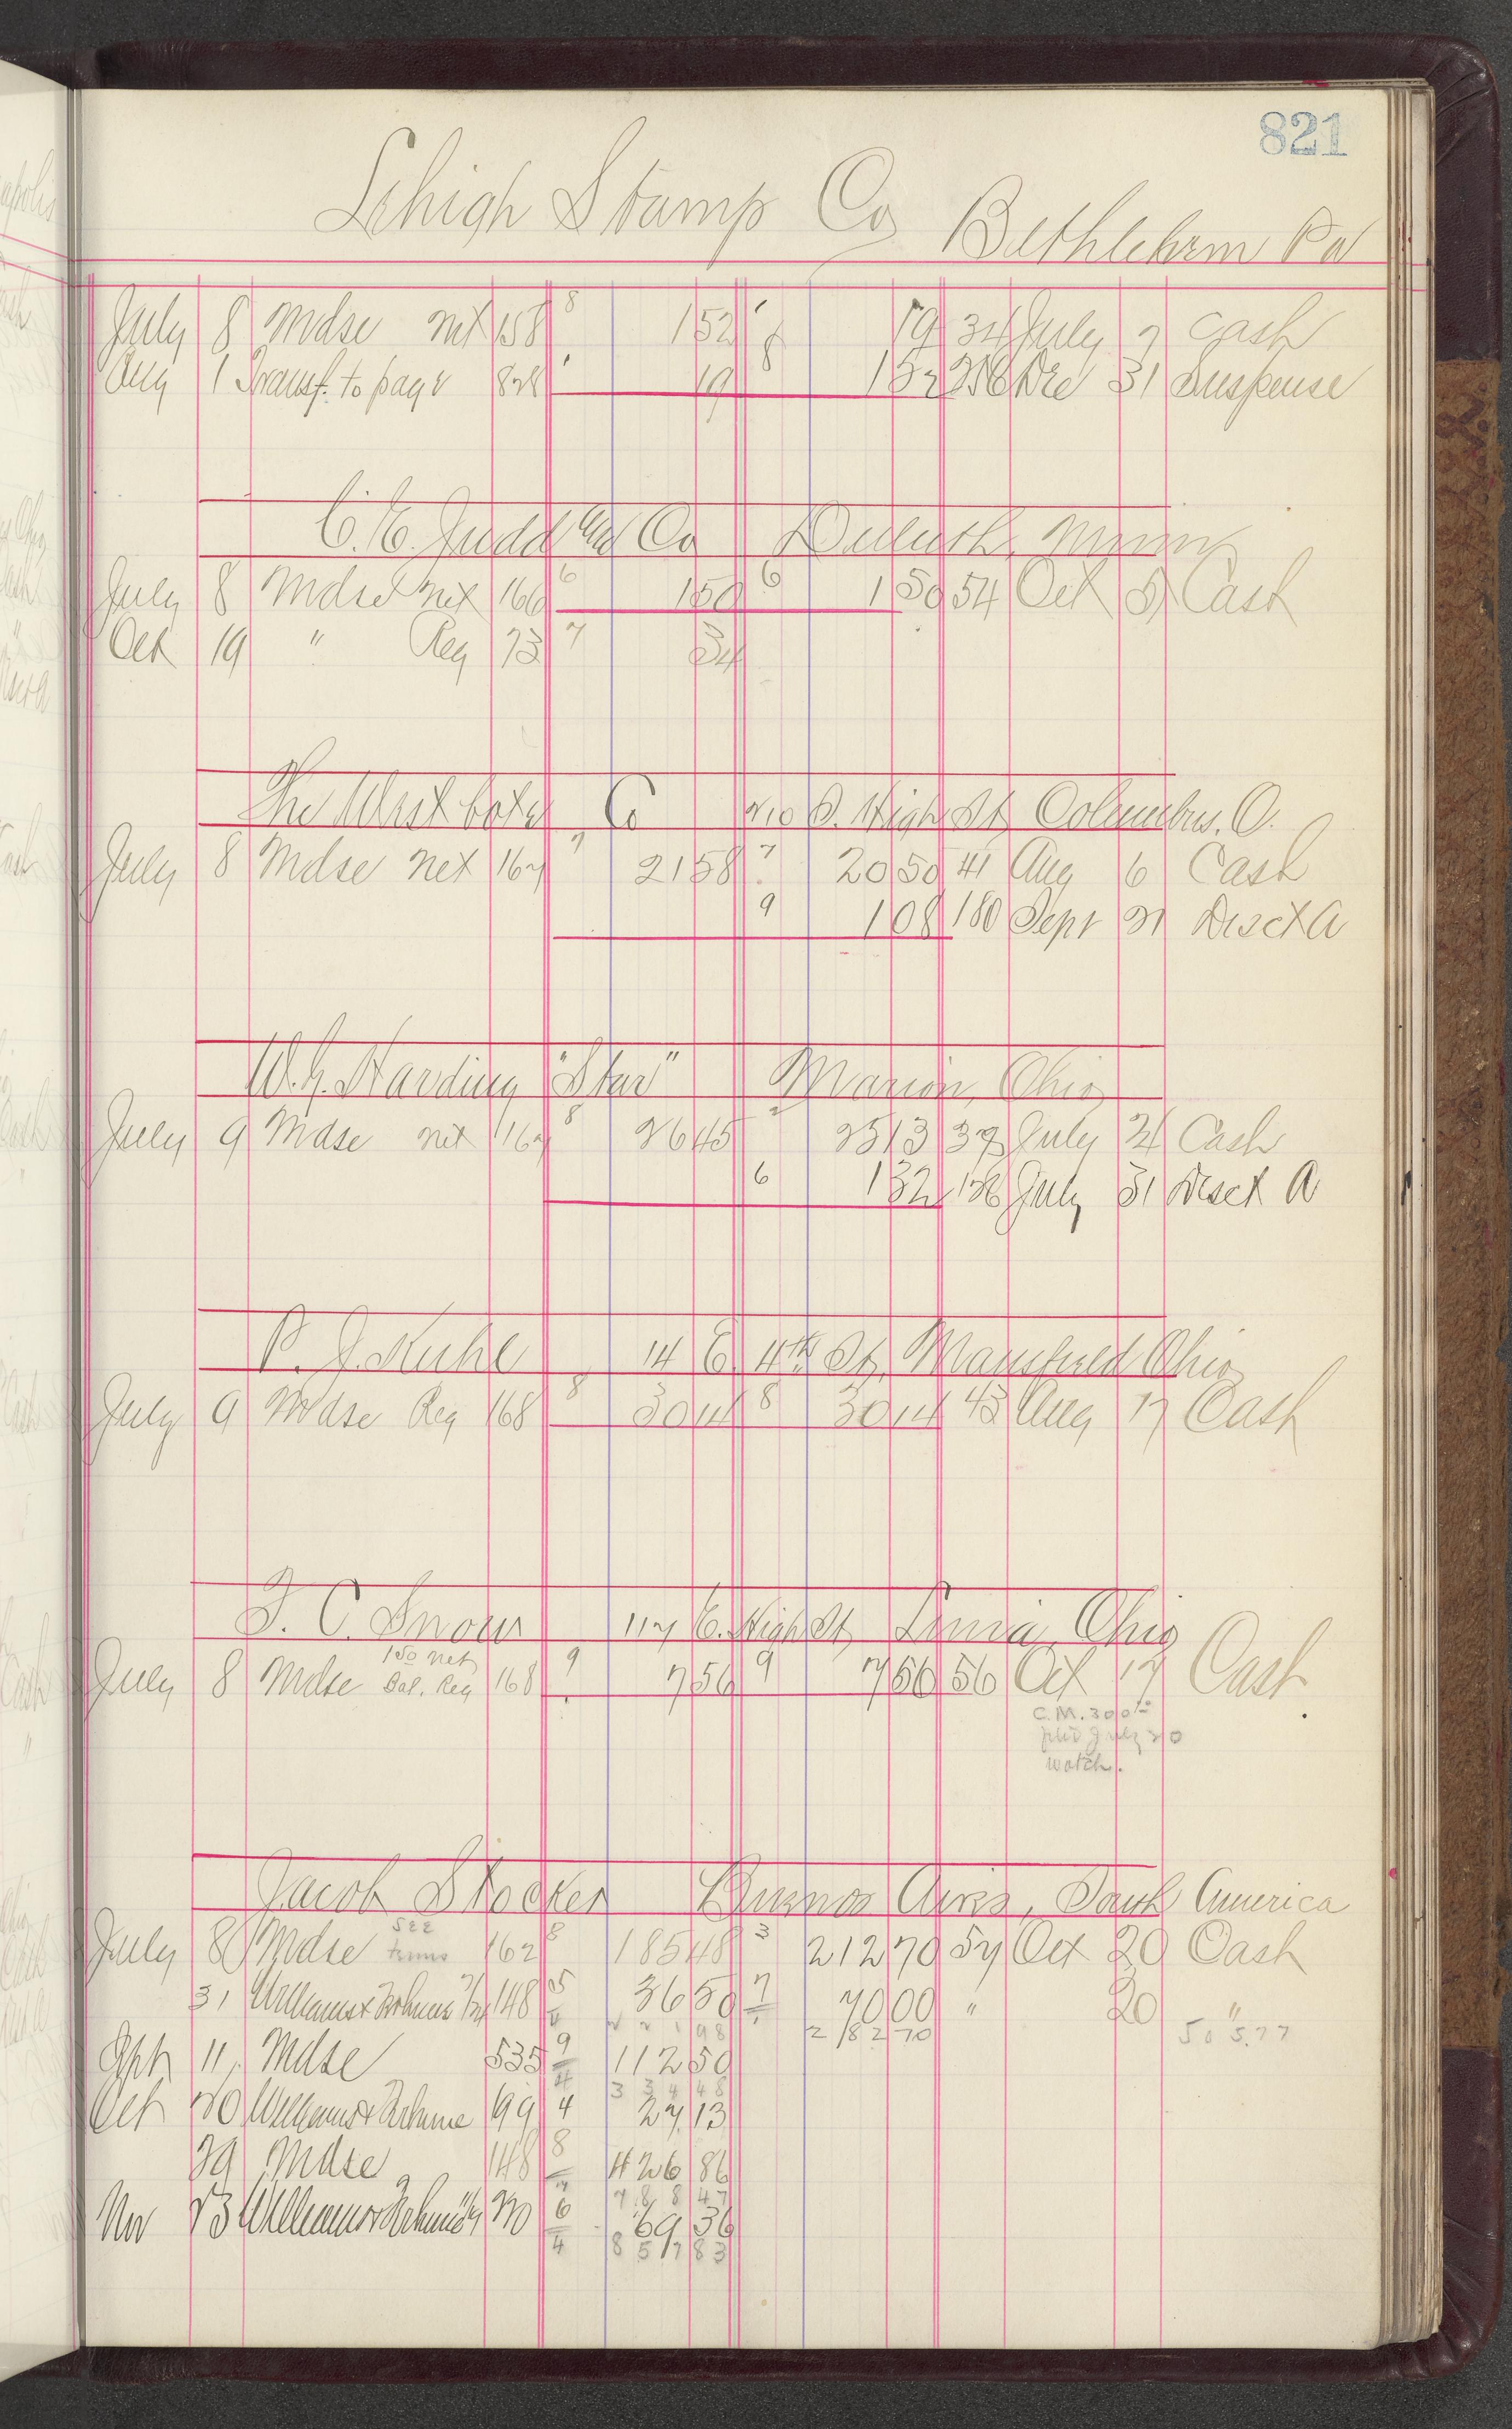 821
Lehigh Stamp Co Bethlehem Pa
July 8 Mdse net 158 8 152 19 34 July 7 Cash
Aug 1 Transf. to page 828 19 8 152 256 Dec 31 Suspense
C. E. Judd Co Duluth, Minn
July 8 Mdse net 166 6 150 6 150 54 Oct 5 Cash
Oct 19 " Reg 73 7 34
The West Co 210 S. High St Columbus, O.
July 8 Mdse net 167 7 2158 7 2050 41 Aug 6 Cash
9 108 180 Sept 21 Disct A
W. G. Harding "Star" Marion, Ohio
July 9 Mdse net 167 8 2645 2513 37 July 21 Cash
6 132 158 July 31 Disct A
P. J. Kuhl 14 E. 4th St, Mansfield Ohio
July 9 Mdse Reg 168 8 3014 8 3014 43 Aug 17 Cash
F. C. Snow 117 E. High St Ohio
150 net
July 8 Mdse Bal. Reg 168 9 756 9 756 56 Oct 17 Cash
C.M. 300
July 20
watch.
Jacob Stocker Buenos Aires, South America
See
July 8 Mdse terms 162 8 18548 3 21270 57 Oct 20 Cash
31 Williams & 148 5 3650 7 7000 " 20 "
2 2 1 98 2 8 2 70 50 5.77
Sept 11 Mdse 535 9 11250
3 3 4 48
Oct 20 Williams & 99 4 2713
29 Mdse 148 8 42686
7 8 8 47
Nov 23 Williams & 270 6 6936
4 8 5 7 83